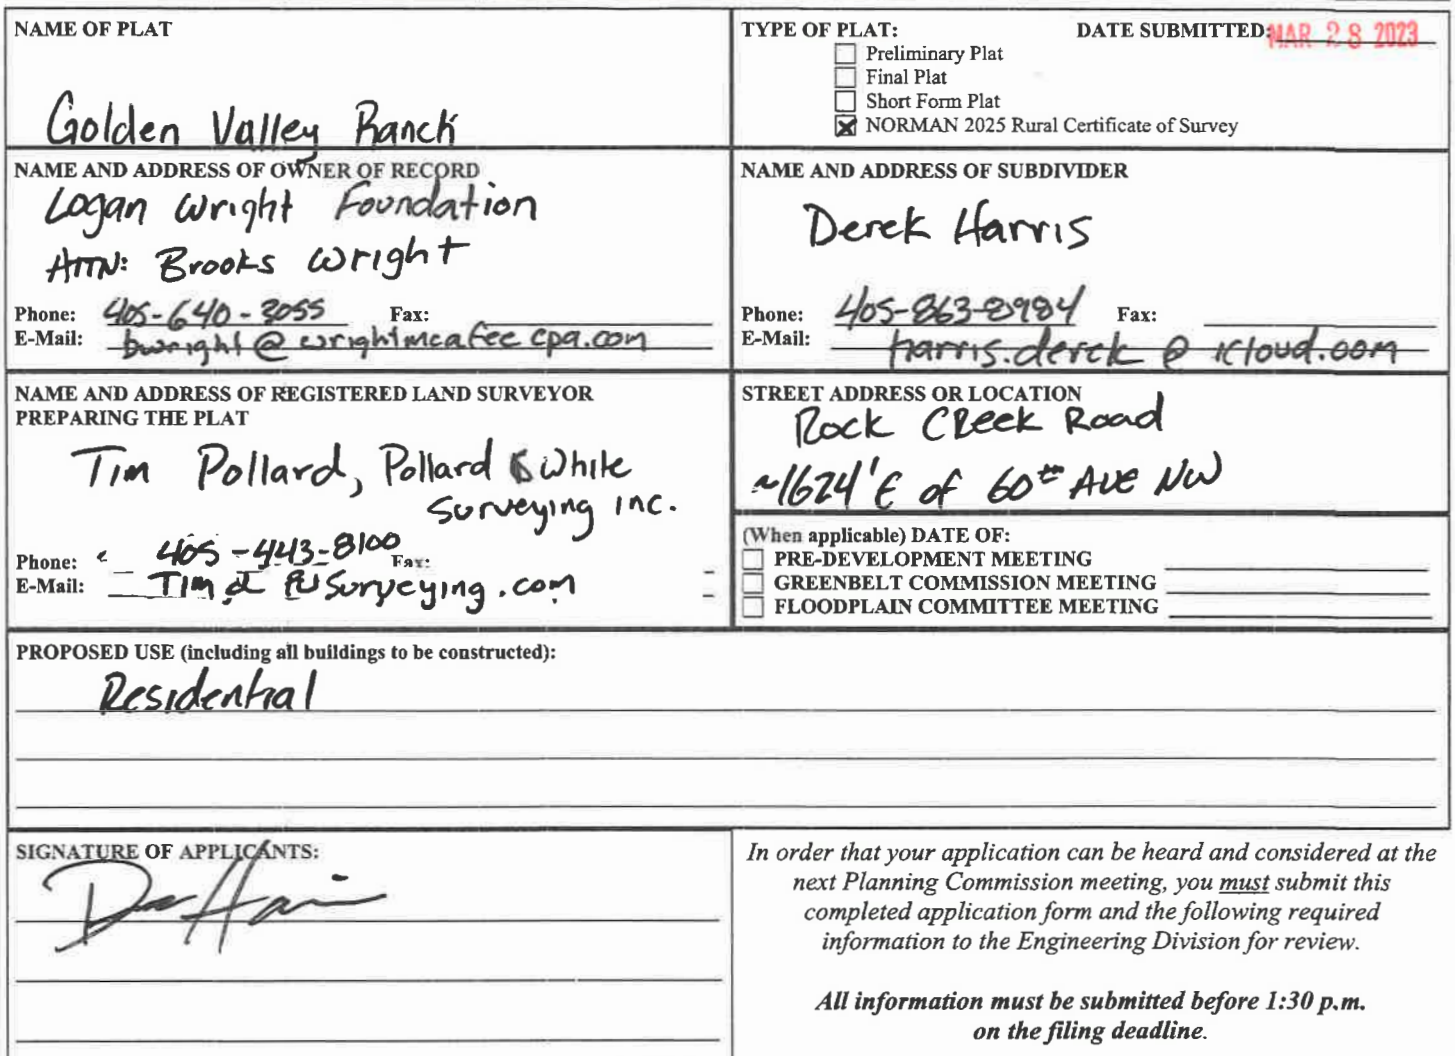 NAME OF PLAT
Golden Valley Ranch
TYPE OF PLAT:
DATE SUBMITTED: MAR 28 2023
Preliminary Plat
Final Plat
Short Form Plat
NORMAN 2025 Rural Certificate of Survey
NAME AND ADDRESS OF OWNER OF RECORD
Logan Wright Foundation
ATTN: Brooks Wright
Phone: 405-640-3055 Fax:
E-Mail: bwright@wrightmcafeecpa.com
NAME AND ADDRESS OF SUBDIVIDER
Derek Harris
Phone: 405-863-8984 Fax:
E-Mail: harris.derek@icloud.com
NAME AND ADDRESS OF REGISTERED LAND SURVEYOR
PREPARING THE PLAT
Tim Pollard, Pollard & White
Surveying inc.
Phone: 405-443-8100 Fax:
E-Mail: Surveying.com
STREET ADDRESS OR LOCATION
Rock Creek Road
~1624' E of 60th AVE NW
(When applicable) DATE OF:
PRE-DEVELOPMENT MEETING
GREENBELT COMMISSION MEETING
FLOODPLAIN COMMITTEE MEETING
PROPOSED USE (including all buildings to be constructed):
Residential
SIGNATURE OF APPLICANTS:
In order that your application can be heard and considered at the
next Planning Commission meeting, you must submit this
completed application form and the following required
information to the Engineering Division for review.
All information must be submitted before 1:30 p.m.
on the filing deadline.